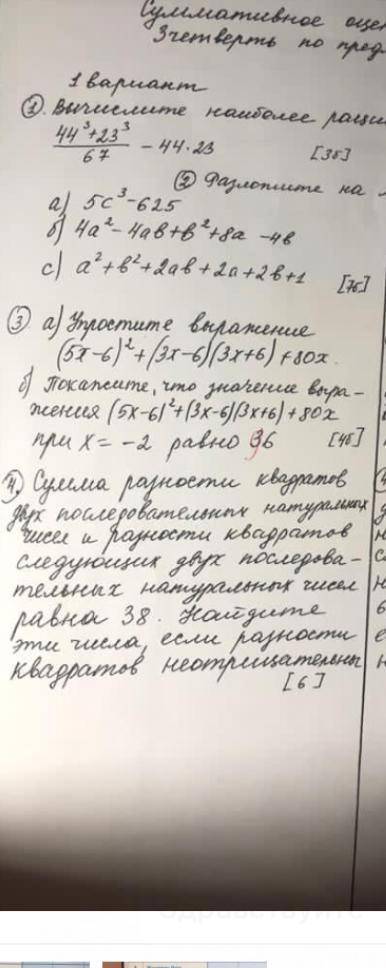 Суммативное оцен
3 четверть по пред
1 вариант
① Вычислите наиболее раци
44³+23³
67
- 44·23 [3б]
② Разложите на
а) 5c³-625
б) 4a²-4ab+b²+8a-4b
c) a²+b²+2ab+2a+2b+1
[7б]
③ а) Упростите выражение
(5x-6)²+(3x-6)(3x+6)+80x.
б) Покажите, что значение выра-
жения (5x-6)²+(3x-6)(3x+6)+80x
при x = -2 равно 36 [4б]
④ Сумма разности квадратов
двух последовательных натуральных
чисел и разности квадратов
следующих двух последова-
тельных натуральных чисел
равна 38. Найдите
эти числа, если разности
квадратов неотрицательны
[6]